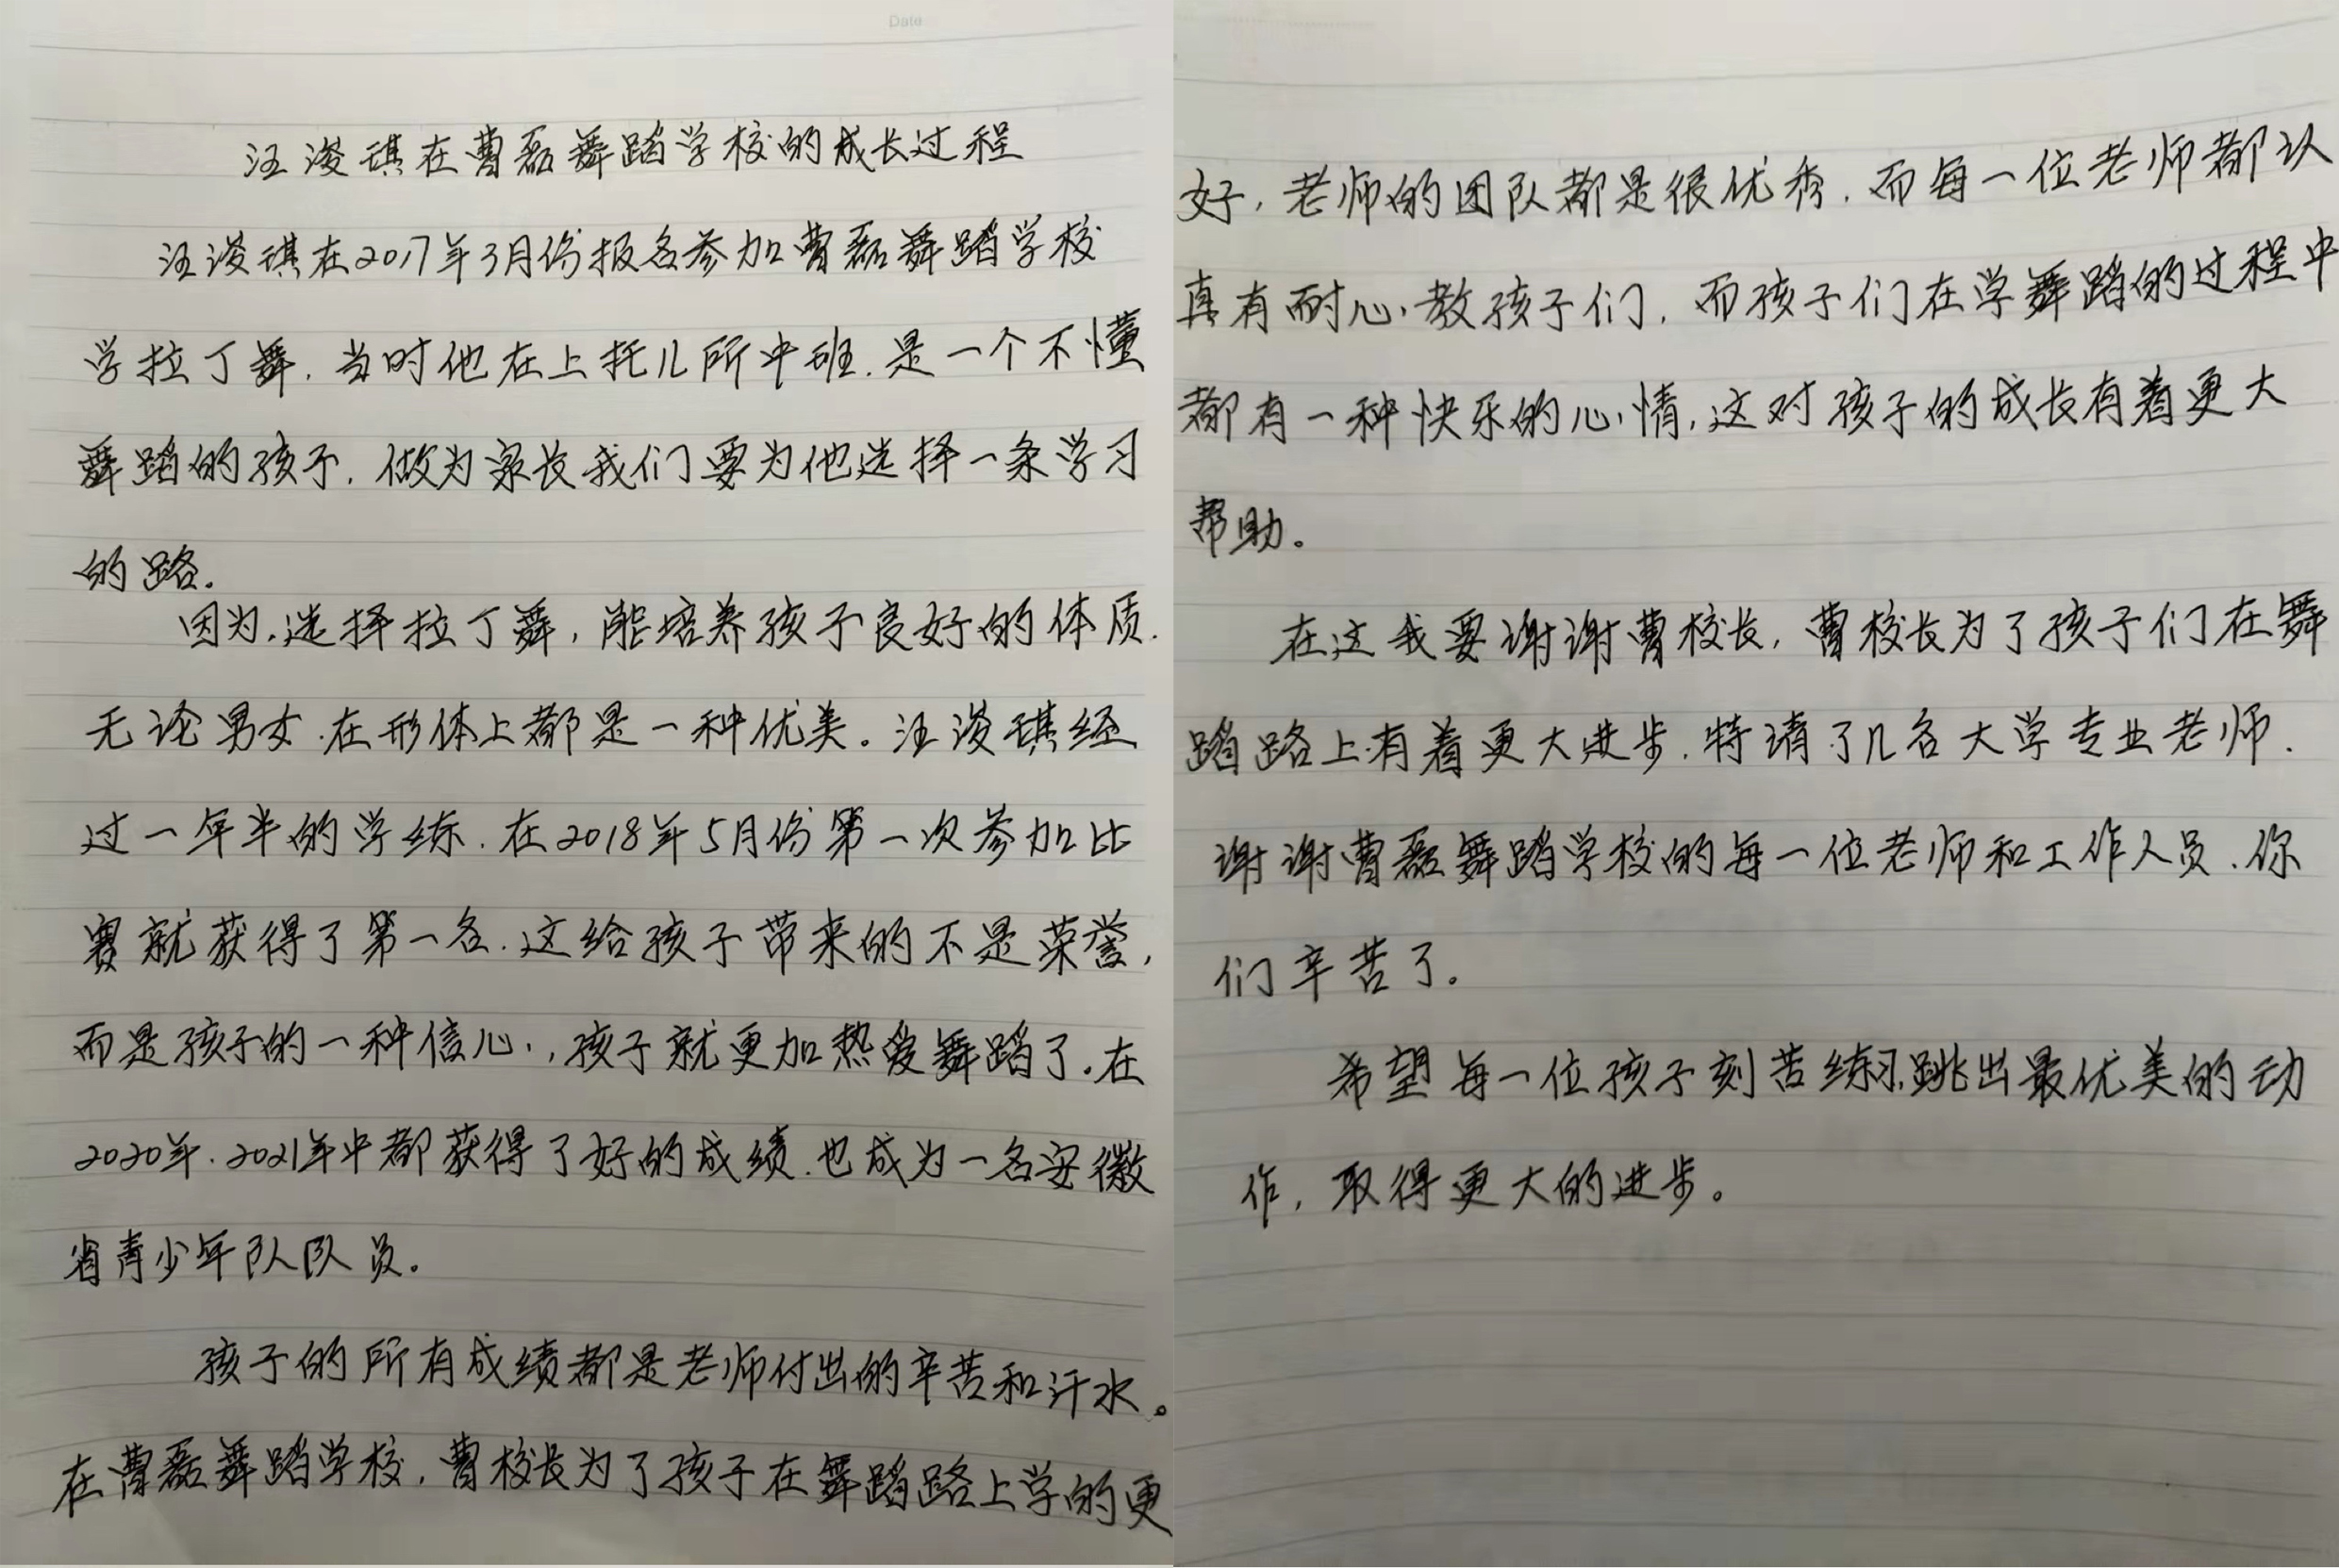 Date
汪浚琪在曹磊舞蹈学校的成长过程
汪浚琪在2017年3月份报名参加曹磊舞蹈学校
学拉丁舞.当时他在上托儿所中班.是一个不懂
舞蹈的孩子.做为家长我们要为他选择一条学习
的路.
因为.选择拉丁舞,能培养孩子良好的体质.
无论男女.在形体上都是一种优美。汪浚琪经
过一年半的学练.在2018年5月份第一次参加比
赛就获得了第一名.这给孩子带来的不是荣誉,
而是孩子的一种信心.,孩子就更加热爱舞蹈了.在
2020年.2021年中都获得了好的成绩.也成为一名安徽
省青少年队队员.
孩子的所有成绩都是老师付出的辛苦和汗水。
在曹磊舞蹈学校.曹校长为了孩子在舞蹈路上学的更
好,老师的团队都是很优秀.而每一位老师都认
真有耐心.教孩子们.而孩子们在学舞蹈的过程中
都有一种快乐的心情,这对孩子的成长有着更大
帮助。
在这我要谢谢曹校长,曹校长为了孩子们在舞
蹈路上有着更大进步.特请了几名大学专业老师.
谢谢曹磊舞蹈学校的每一位老师和工作人员.你
们辛苦了。
希望每一位孩子刻苦练习,跳出最优美的动
作,取得更大的进步。